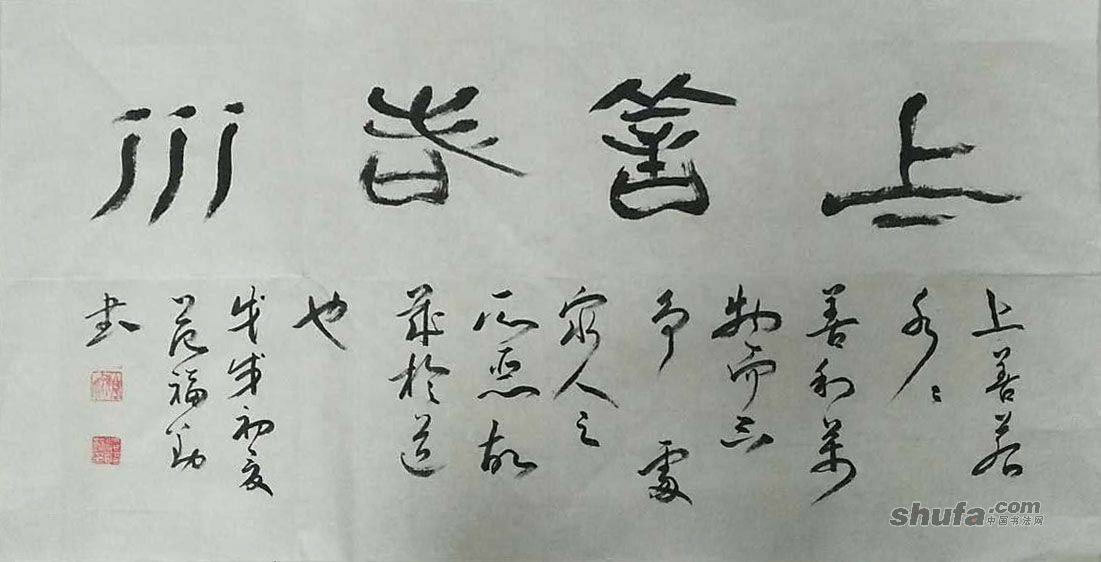 上善若水
上善若
水〻
善利萬
物而不
争處
衆人之
所惡故
幾於道
也
戊戌初夏
范福勤
書
shufa.com
中国书法网